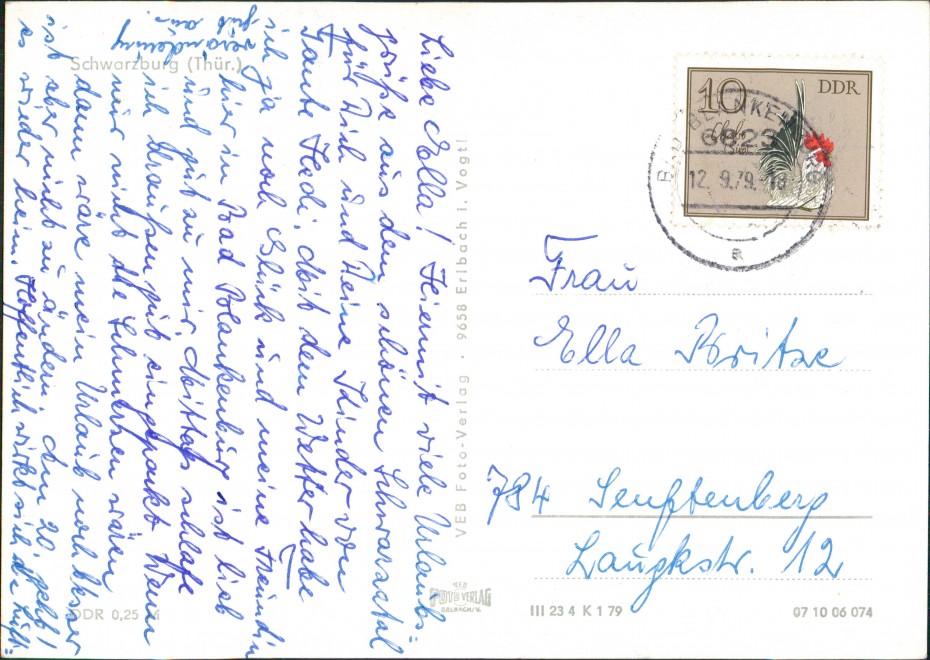 Liebe Ella! Hiermit viele Urlaubs=
grüße aus dem schönen Schwarzatal
für Dich und Deine Kinder von
Tante Hedi. Mit dem Wetter habe
ich ja noch Glück und meine Freundin
hier in Bad Blankenburg ist lieb
und gut zu mir. Mittags schlafe
ich draußen gut eingepackt. Wenn
nur nicht die Schmerzen wären
dann wäre mein Urlaub noch besser
ist aber nicht zu ändern. Am 20. geht
es wieder heim. Hoffentlich wirkt sich die Luft=
veränderung
gut aus.
Schwarzburg (Thür.)
DDR 0,25 M
VEB Foto-Verlag · 9658 Erlbach i. Vogtl
VEB
FOTO VERLAG
ERLBACH/V.
10
DDR
BAD BLANKENBURG
6823
12.9.79.18
a
Frau
Ella Britze
784 Senftenberg
Laugkstr. 12
III 23 4 K 1 79
07 10 06 074